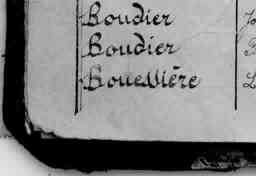 Boudier
Boudier
Bouessière